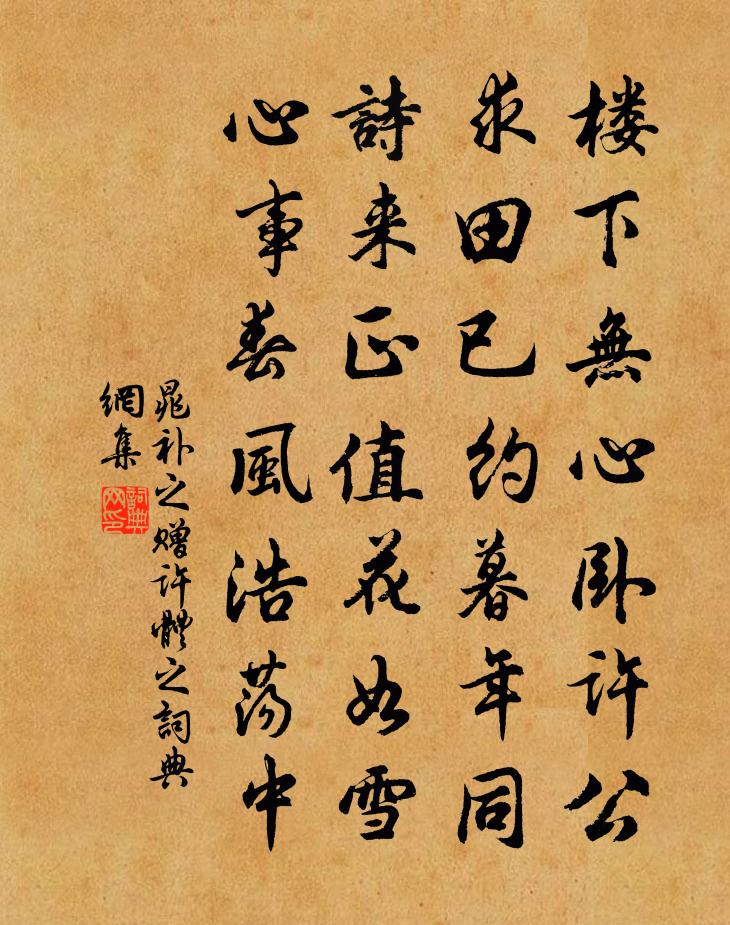 楼下無心卧许公
求田已约暮年同
詩来正值花如雪
心事春風浩荡中
晁补之赠许體之詞典
網集
詞典网印